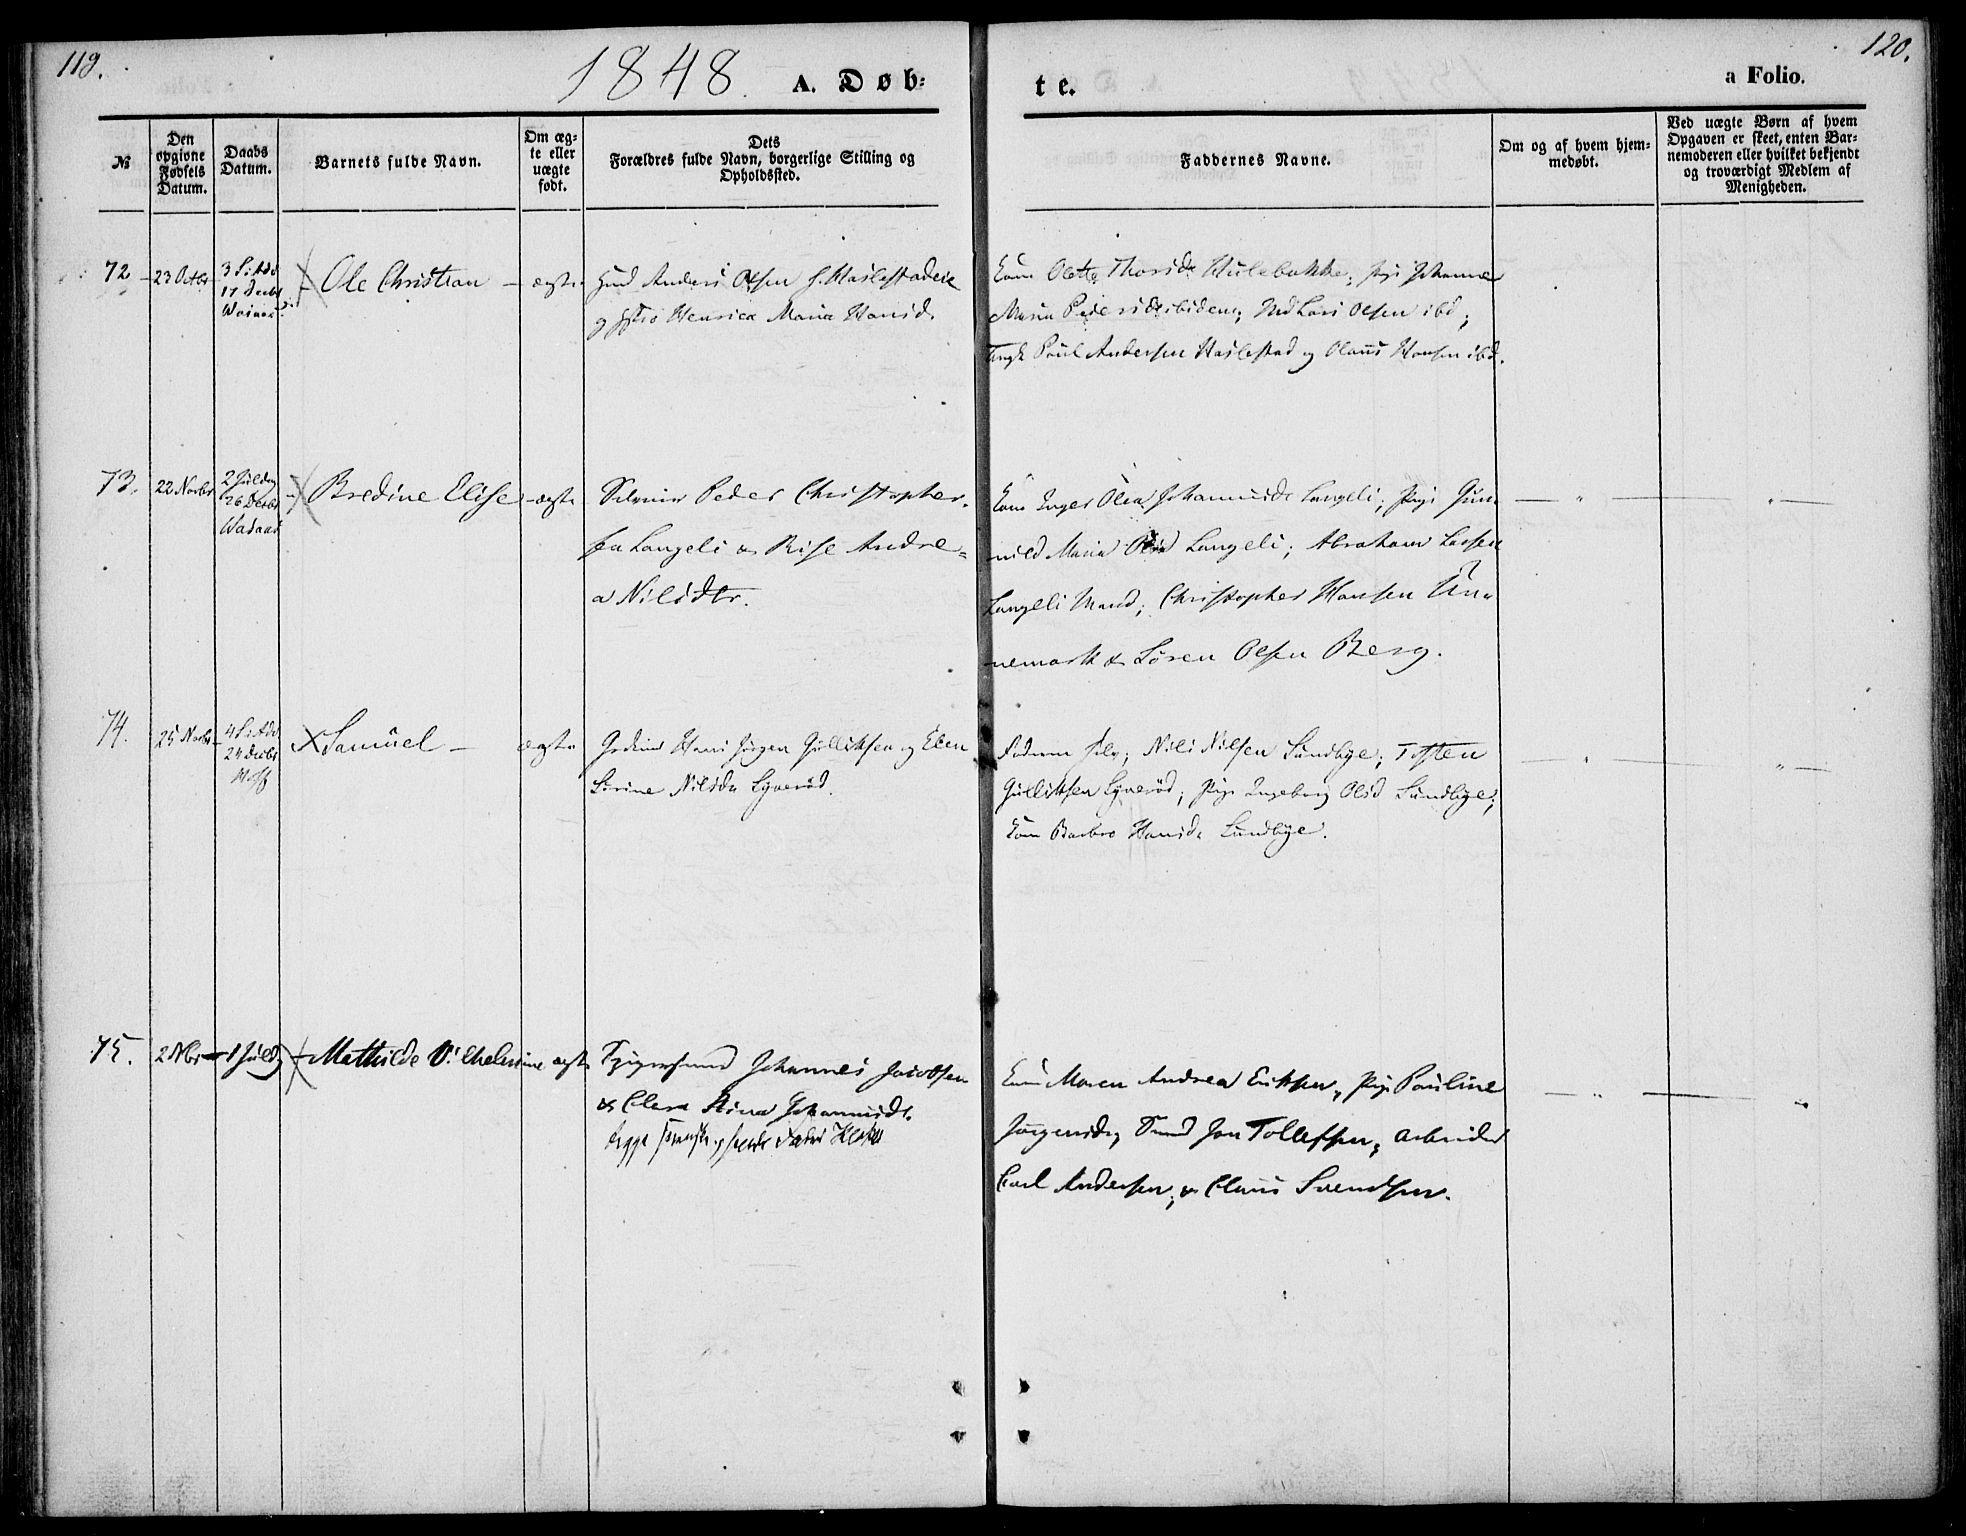 119.
1848.
A. Døb-
te.
a Folio.
120.
№
Den opgivne Fødsels Datum.
Daabs Datum.
Barnets fulde Navn.
Om ægte eller uægte født.
Dets Forældres fulde Navn, borgerlige Stilling og Opholdssted.
Faddernes Navne.
Om og af hvem hjemmedøbt.
Ved uægte Børn af hvem Opgaven er skeet, enten Barnemoderen eller hvilket bekjendt og troværdigt Medlem af Menigheden.
72
23 Octbr
3 S. i Adv
17 Decbr
Ole Christian
ægte
Anders Olsen
og Henrica Maria Hansd.
Kone Olette Thorsdr Hulebakke; Pige Johanne
Maria Pedersdr ibidem; Lars Olsen ibd;
Ungk Poul Andersen Haslestad og Olaus Hansen ibd.
73.
22 Novbr
2 Juledag
26 Decbr
Bredine Elise
ægte
Peder Christopher-
sen Langeli & Rise Andre-
a Nilsdtr.
Kone Inger Olea Johannisdr Langeli; Pige Gun-
nild Maria Olsd Langeli; Abraham Larsen
Langeli Mand; Christopher Hansen Un-
nemark & Søren Olsen Berg.
74.
25 Novbr
4 S. i Adv
24 Decbr
Samuel
ægte
Hans Jørgen Gulliksen og Elen
Sirine Nilsdr
Faderen selv; Nils Nilsen Sundbye; Tosten
Gulliksen; Pige Ingeborg Olsd Sundbye;
Kone Barbro Hansdr Sundbye.
75.
2 Nbr
1 Juledg
Mathilde Vilhelmine
ægte
Johannes Jacobsen
& Clara Stina Johannisdr.
begge
Kone Maren Andrea Eriksen, Pige Pauline
Jørgensdr, Jon Tollefsen, Arbeider
Carl Andersen, & Claus Svendsen.